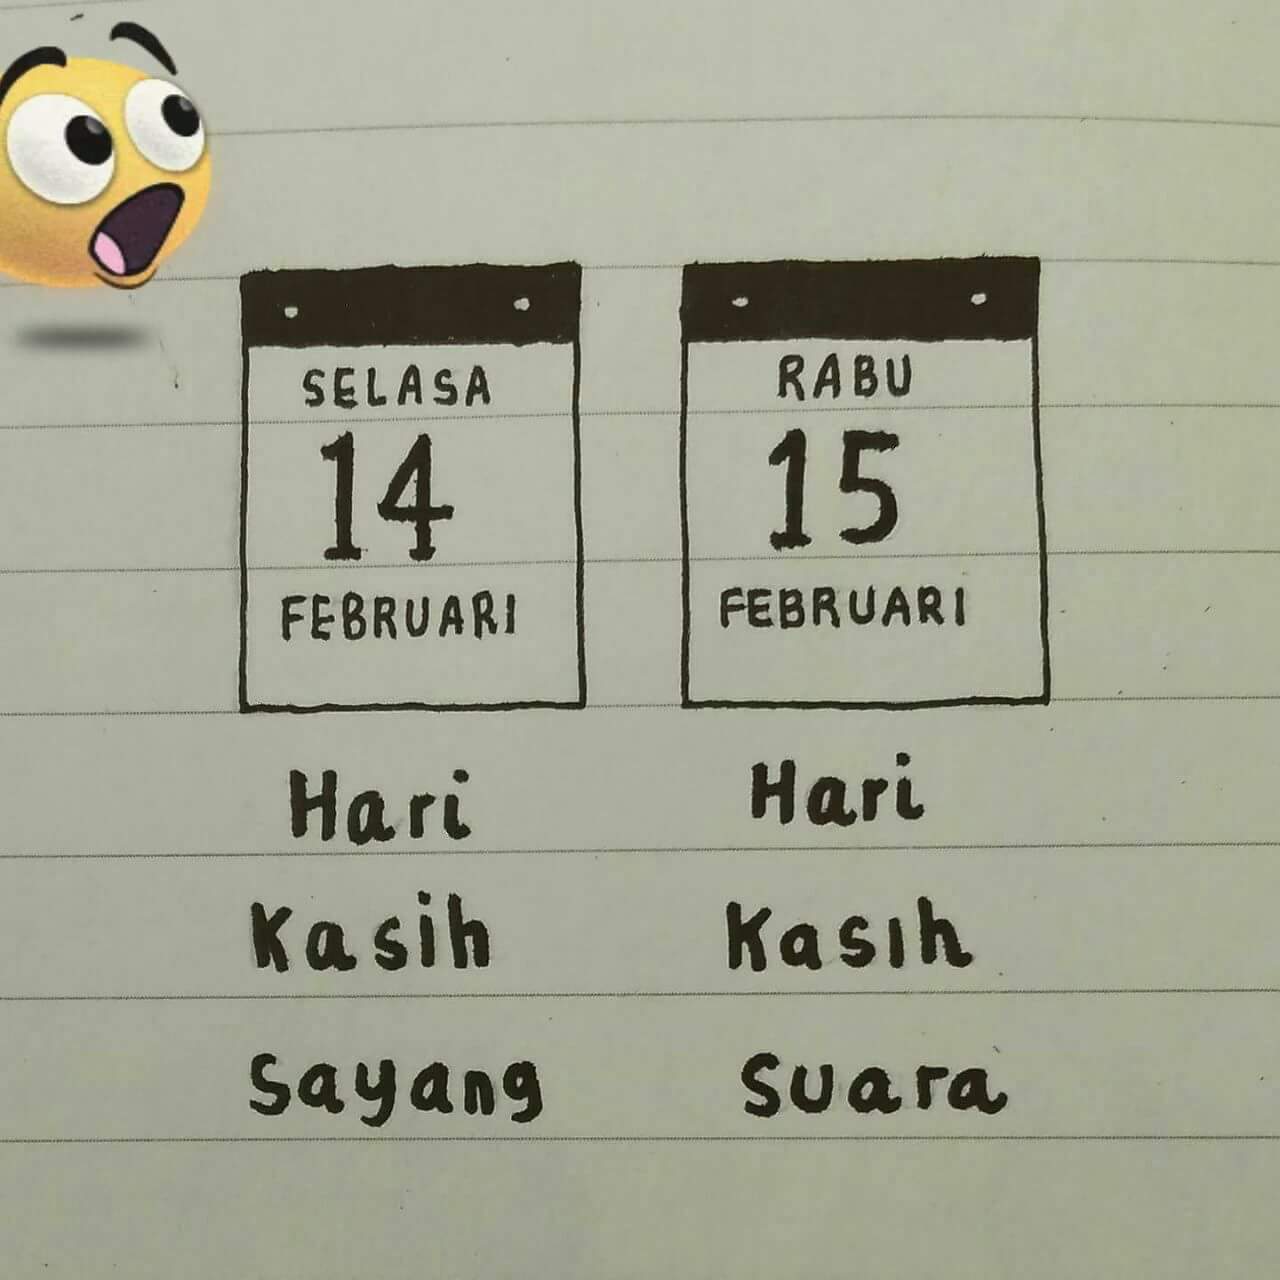 SELASA
14
FEBRUARI
Hari
Kasih
Sayang
RABU
15
FEBRUARI
Hari
Kasih
Suara